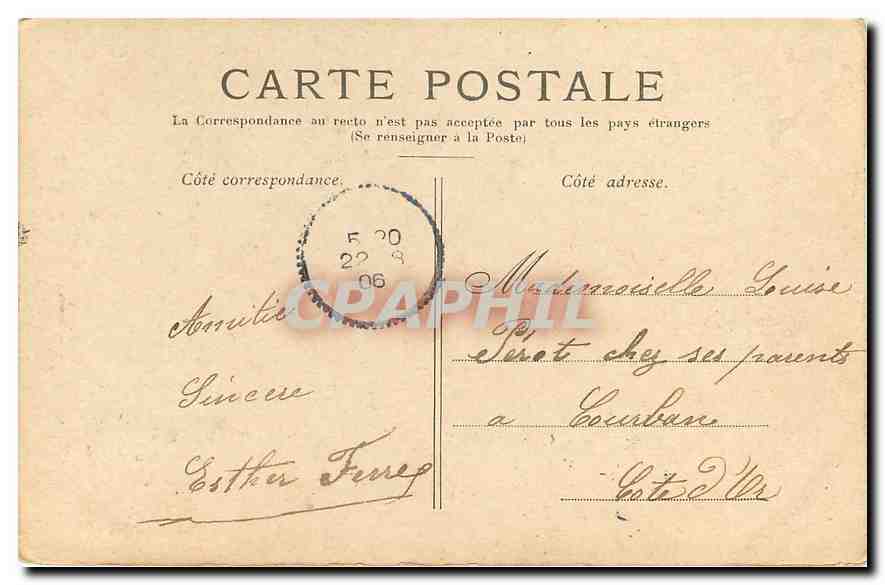 CARTE POSTALE
La Correspondance au recto n'est pas acceptée par tous les pays étrangers
(Se renseigner à la Poste)
Côté correspondance.
Côté adresse.
5 20
22 8
06
CPAPHIL
Amitié
Sincere
Esther
Mademoiselle Louise
Perot chez ses parents
a Courban
Cote d'Or